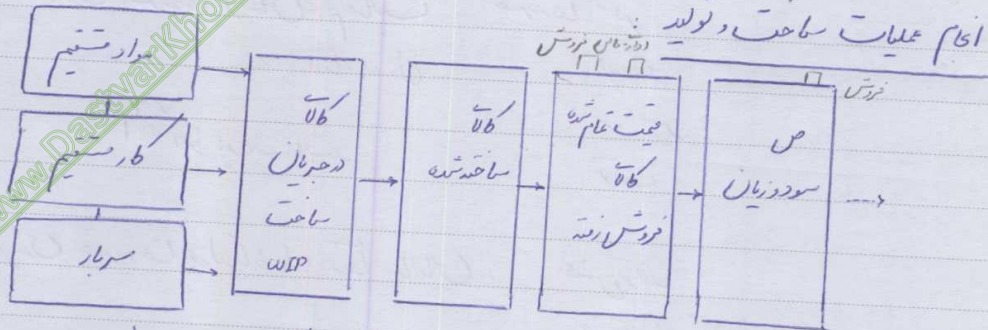 انجام عملیات ساخت و تولید
فروش
مواد مستقیم
کار مستقیم
سربار
کالای
در جریان
ساخت
WIP
کالای
ساخته شده
قیمت تمام شده
کالای
فروش رفته
ص
سود و زیان
www.Dastyarkhoo